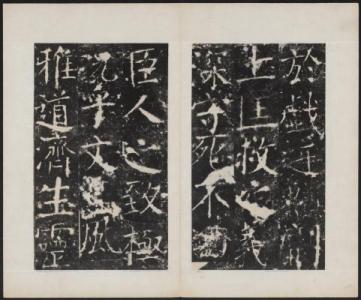 於戲
上匡救之義
深守死不
臣人之致極
況乎文風
雅道濟生靈